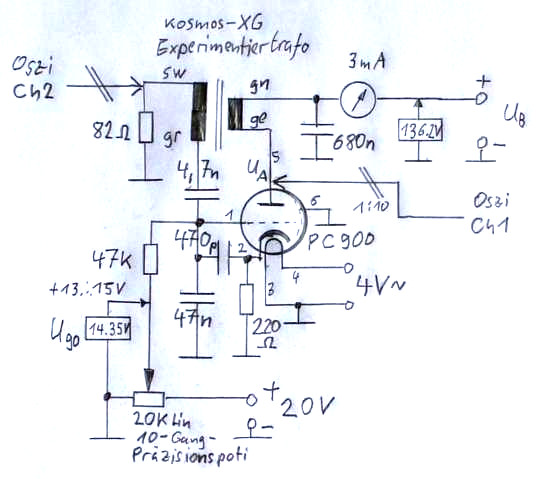 Kosmos-XG
Experimentiertrafo
Oszi
Ch2
sw
gn
3mA
+
82Ω
gr
ge
680n
136.2V
U_B
-
4,7n
U_A
5
6
1:10
Oszi
Ch1
1
470p
2
PC900
47K
3
4
4V~
+13...15V
47n
220
Ω
U_g0
14.35V
+
20V
-
20K lin
10-Gang-
Präzisionspoti